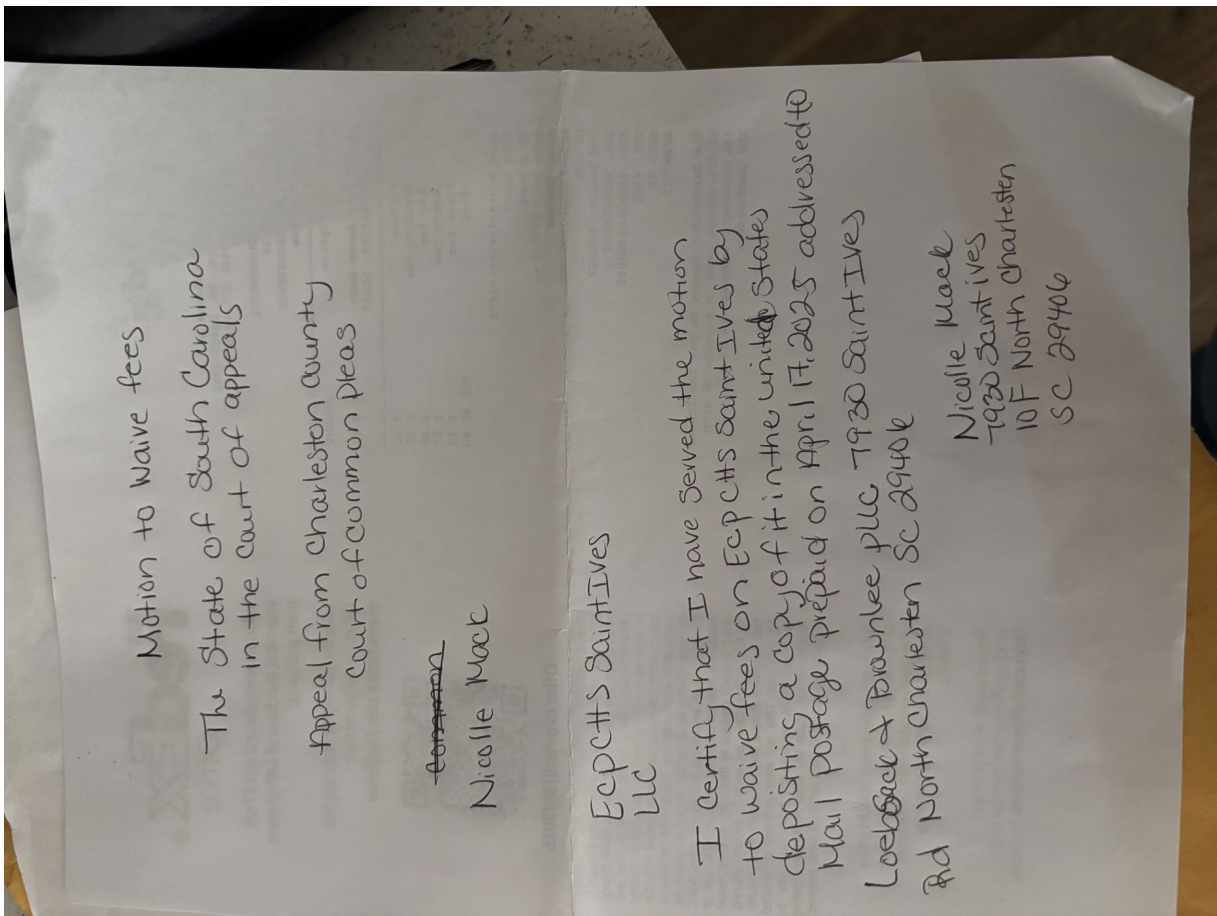 Motion to waive fees
The State of South Carolina
in the court of appeals
Appeal from Charleston county
Court of common pleas
common
Nicolle Mack
Ecp CHS Saint Ives
LLC
I certify that I have served the motion
to waive fees on Ecp CHS Saint Ives by
depositing a copy of it in the united States
Mail postage prepaid on April 17, 2025 addressed to
Loeback & Brownlee pllc 7930 Saint Ives
Rd North Charleston SC 29406
Nicolle Mack
7930 Saint ives
10F North Charlesten
SC 29406